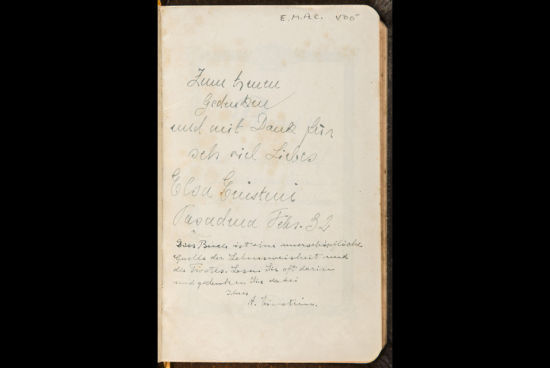 E.M.A.C. VDO
Zum treuen
Gedenken
und mit Dank für
sehr viel Liebes
Elsa Einstein
Pasadena Febr. 32
Das Buch ist eine unerschöpfliche
Quelle der Lebensweisheit und
des Trostes. Lesen Sie oft darin
und gedenken Sie dabei
Ihres
A. Einstein.